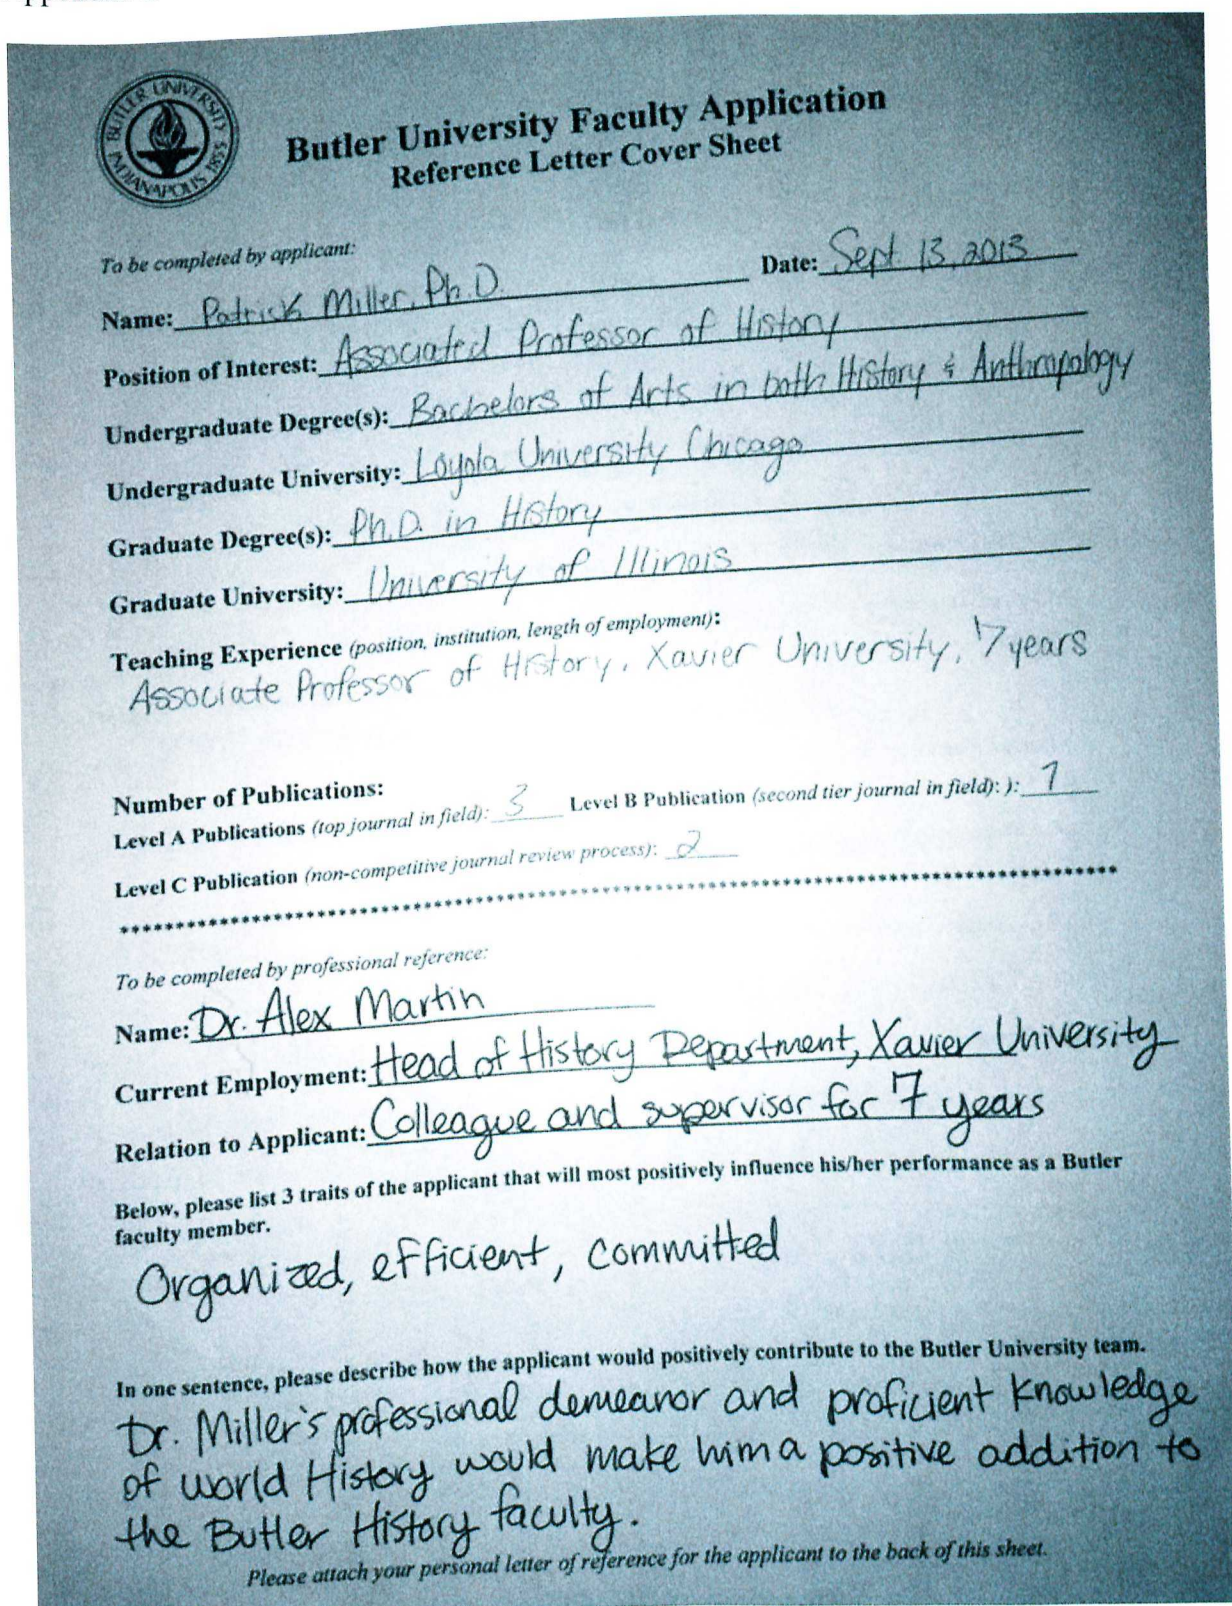 BUTLER UNIVERSITY
INDIANAPOLIS 1855
Butler University Faculty Application
Reference Letter Cover Sheet
To be completed by applicant:
Date: Sept. 13, 2013
Name: Patrick Miller, Ph.D.
Position of Interest: Associated Professor of History
Undergraduate Degree(s): Bachelors of Arts in both History & Anthropology
Undergraduate University: Loyola University Chicago
Graduate Degree(s): Ph.D. in History
Graduate University: University of Illinois
Teaching Experience (position, institution, length of employment):
Associate Professor of History, Xavier University, 7 years
Number of Publications:
Level A Publications (top journal in field): 3 Level B Publication (second tier journal in field): ):
Level C Publication (non-competitive journal review process): 2
************************************************************************************
To be completed by professional reference:
Name: Dr. Alex Martin
Current Employment: Head of History Department, Xavier University
Relation to Applicant: Colleague and supervisor for 7 years
Below, please list 3 traits of the applicant that will most positively influence his/her performance as a Butler
faculty member.
Organized, efficient, committed
In one sentence, please describe how the applicant would positively contribute to the Butler University team.
Dr. Miller's professional demeanor and proficient knowledge
of world History would make him a positive addition to
the Butler History faculty.
Please attach your personal letter of reference for the applicant to the back of this sheet.